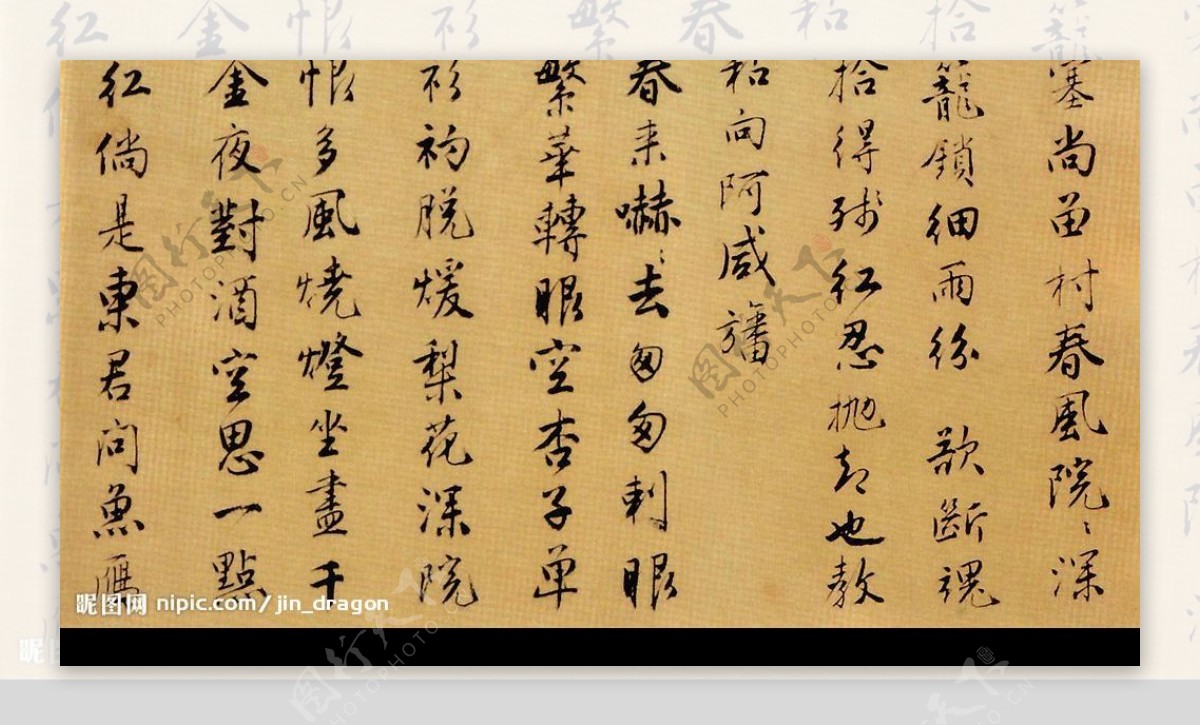 塞尚畄村春風院々深
籠鎖細雨紛歌斷魂
拾得殘紅忍抛却也教
和向阿咸旛
春来嚇々去匆匆刺眼
繁華轉眼空杏子單
衫初脱煖梨花深院
恨多風燒燈坐盡千
金夜對酒空思一點
紅倘是東君問魚雁
昵图网 nipic.com/jin_dragon
图行天下 PHOTOPHOTO.CN